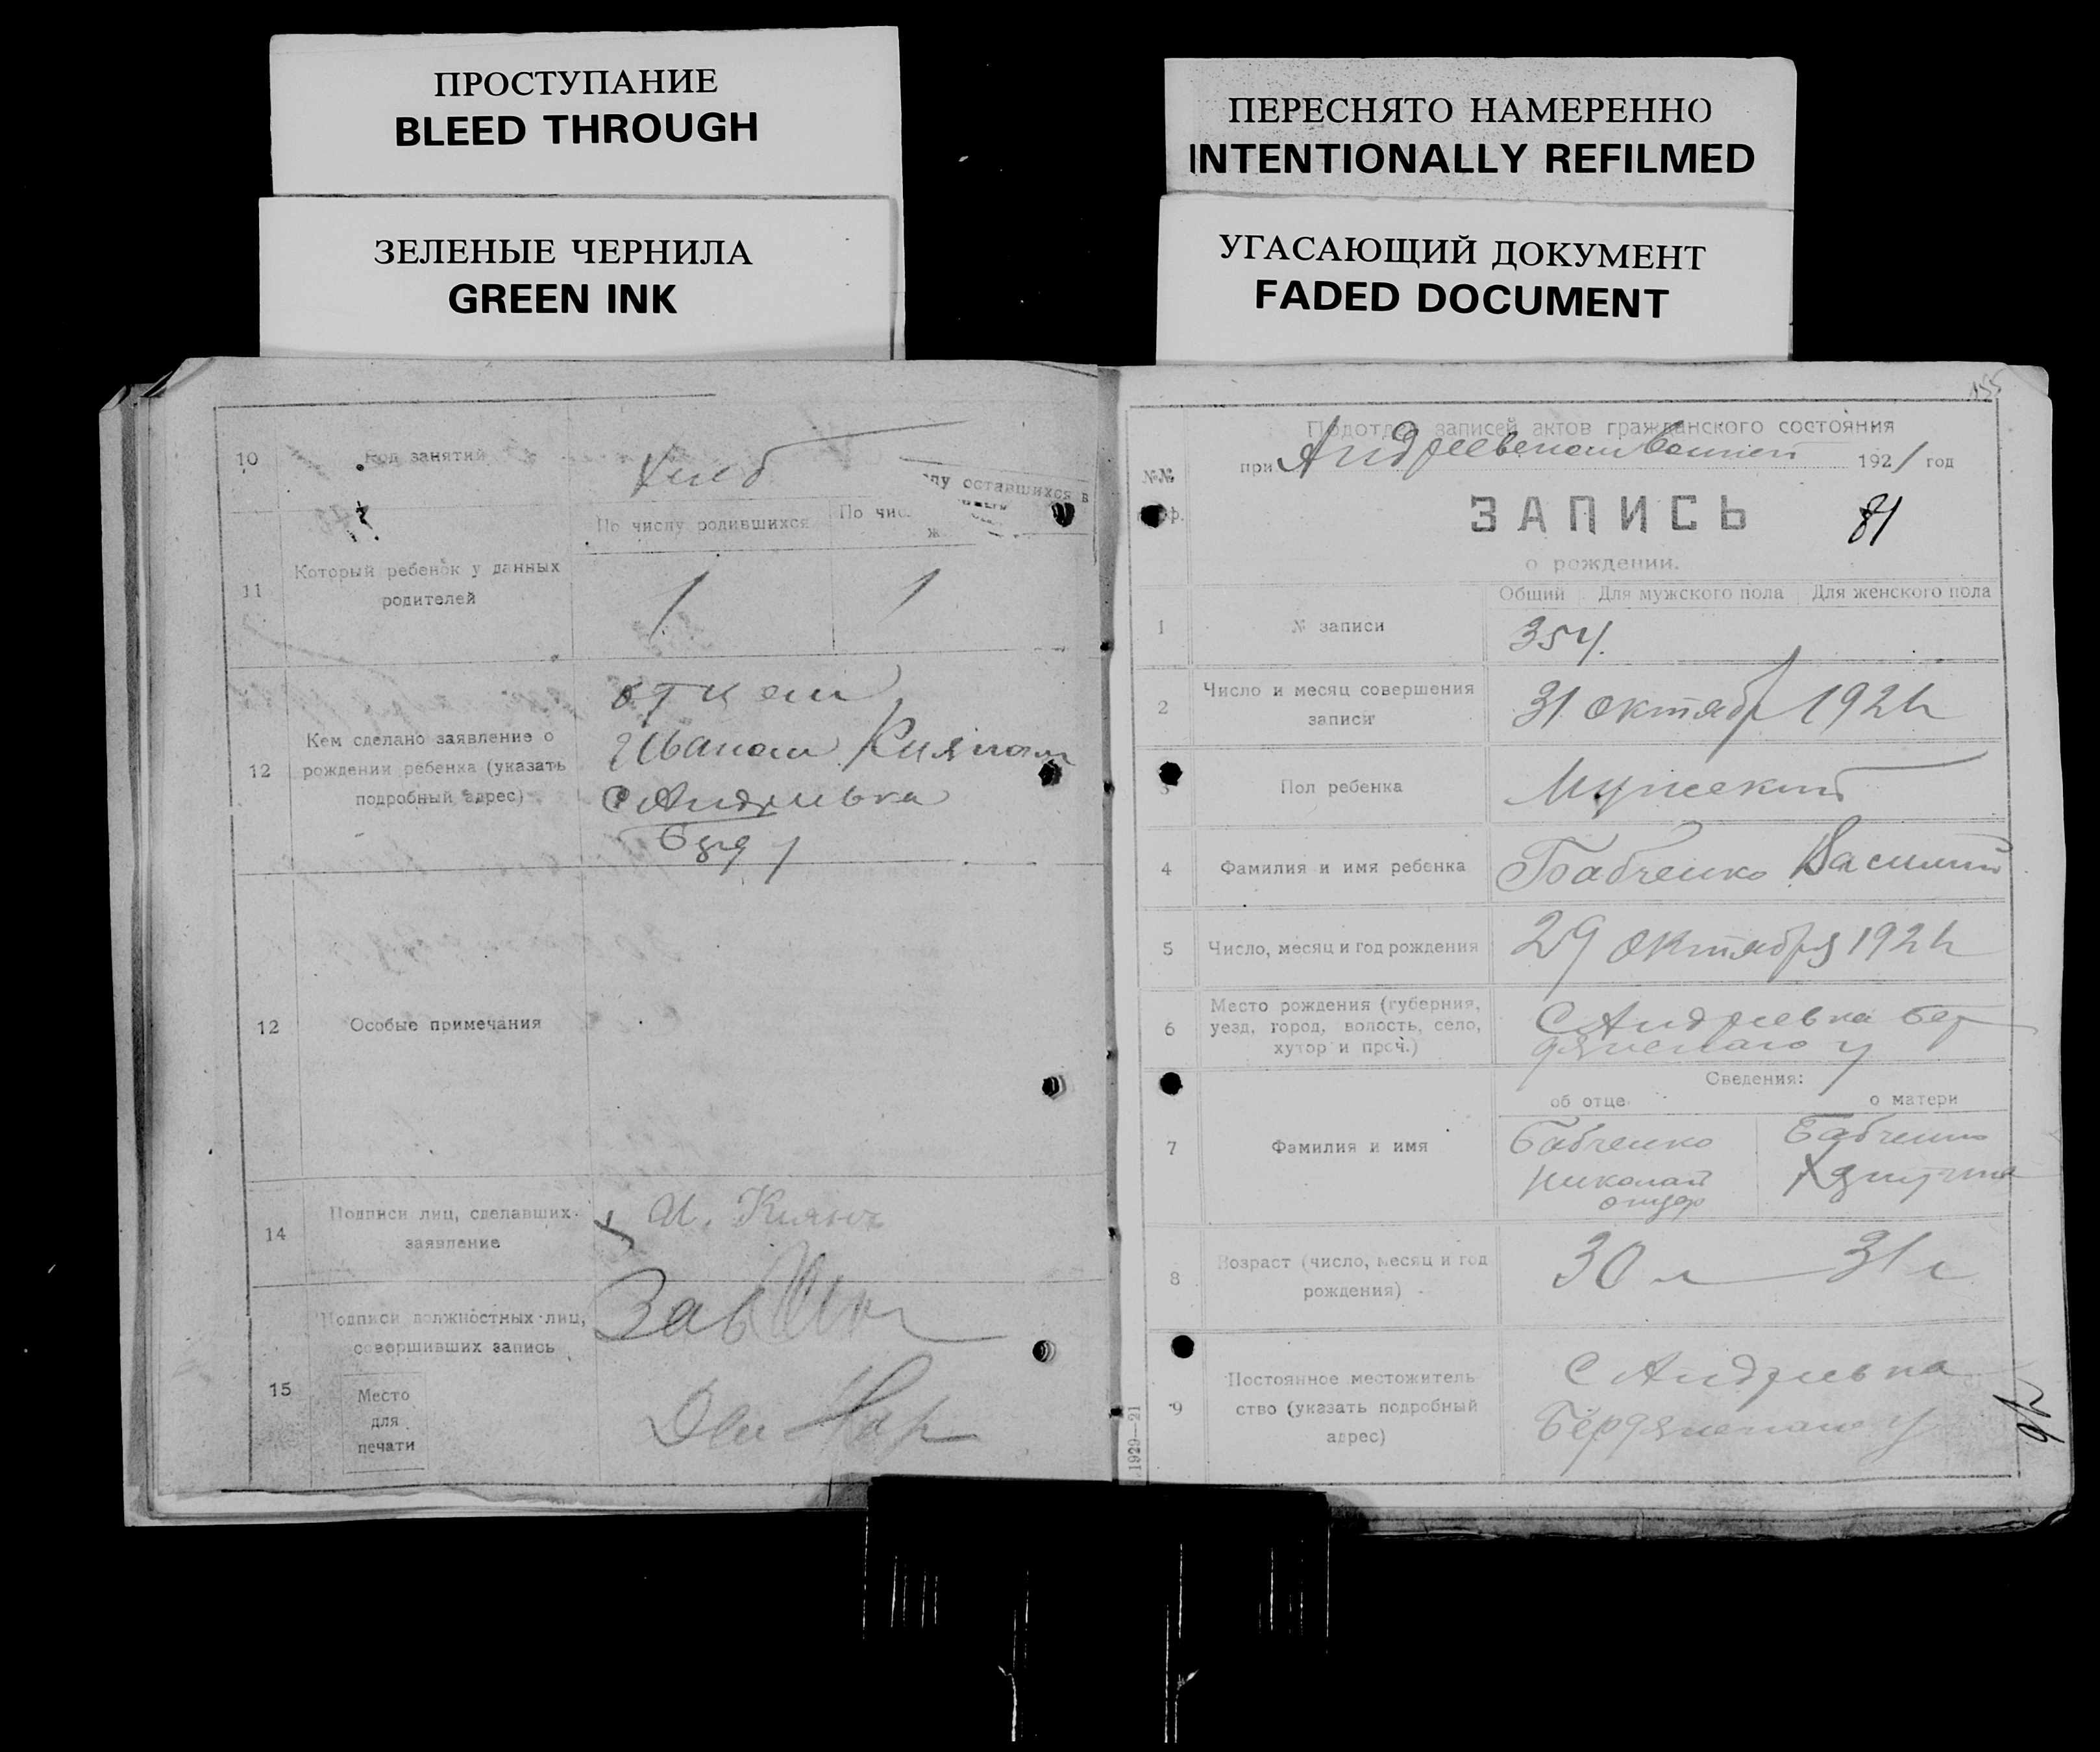 ПРОСТУПАНИЕ
BLEED THROUGH
ЗЕЛЕНЫЕ ЧЕРНИЛА
GREEN INK
ПЕРЕСНЯТО НАМЕРЕННО
INTENTIONALLY REFILMED
УГАСАЮЩИЙ ДОКУМЕНТ
FADED DOCUMENT
10 Род занятий Хлеб
По числу родившихся По чис
лу оставшихся в
ж
11 Который ребенок у данных
родителей 1 1
12 Кем сделано заявление о
рождении ребенка (указать
подробный адрес)
отцем
Иваном Кияном
С Андреевка
12 Особые примечания
14 Подписи лиц, сделавших
заявление И. Киянъ
15 Подписи должностных лиц,
совершивших запись Зав
Место
для
печати
Дел
155
Подотдел записей актов гражданского состояния
№№ при Андреевском 1921 год
ЗАПИСЬ 81
о рождении.
Общий Для мужского пола Для женского пола
1 № записи 354.
2 Число и месяц совершения
записи 31 октябр 1921
3 Пол ребенка Мужеский
4 Фамилия и имя ребенка Бабченко Василий
5 Число, месяц и год рождения 29 Октября 1921
6 Место рождения (губерния,
уезд, город, волость, село,
хутор и проч.)
С Андреевка Бер
дянскаго у
Сведения:
об отце о матери
7 Фамилия и имя
Бабченко Бабченко
Николай
8 Возраст (число, месяц и год
рождения) 30 л 31 г
9 Постоянное местожитель
ство (указать подробный
адрес)
С Андреевка
Бердянскаго у
1929—21